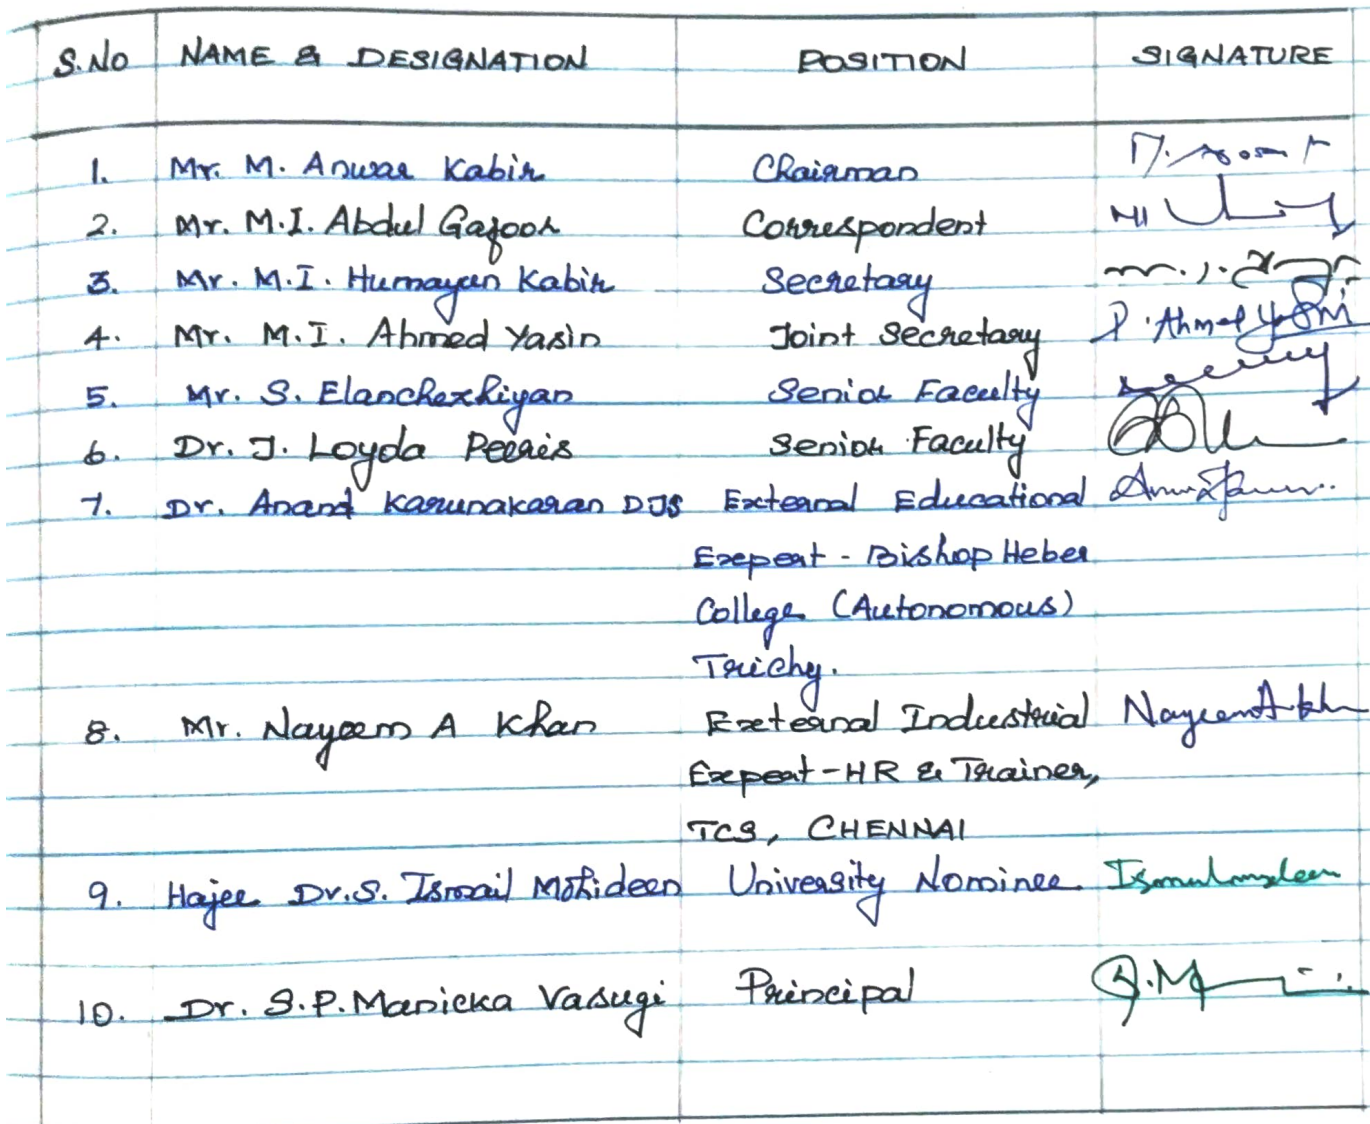 S.No NAME & DESIGNATION POSITION SIGNATURE
1. Mr. M. Anwar Kabir Chairman
2. Mr. M.I. Abdul Gafoor Correspondent MI
3. Mr. M.I. Humayun Kabir Secretary m.
4. Mr. M.I. Ahmed Yasin Joint Secretary Ahmed Yasin
5. Mr. S. Elanchezhiyan Senior Faculty
6. Dr. J. Loyda Peeris Senior Faculty
7. Dr. Anand Karunakaran DJS External Educational
Expert - Bishop Heber
College (Autonomous)
Trichy.
8. Mr. Nayeem A Khan External Industrial Nayeem A Khan
Expert - HR & Trainer,
TCS, CHENNAI
9. Hajee Dr. S. Ismail Mohideen University Nominee
10. Dr. S.P. Manicka Vasugi Principal